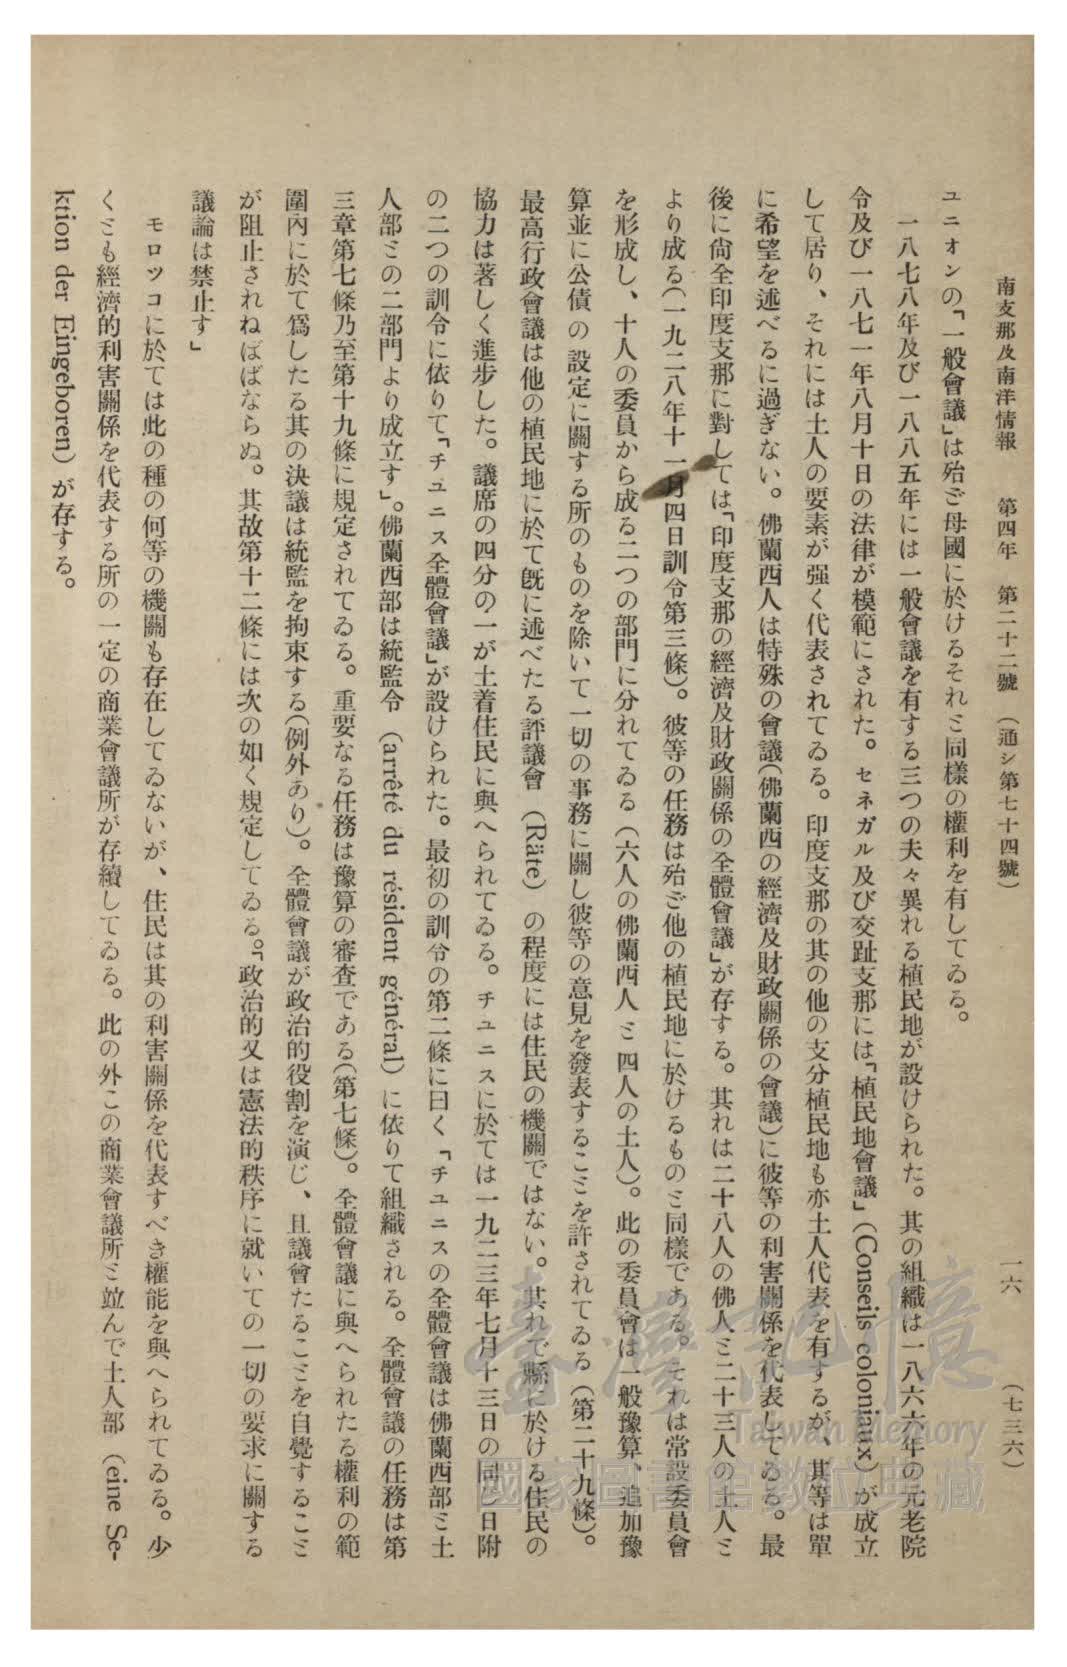 南支那及南洋情報　第四年　第二十二號　（通シ第七十四號）　一六　（七三六）
ユニオンの「一般會議」は殆ご母國に於けるそれミ同樣の權利を有してゐる。
一八七八年及び一八八五年には一般會議を有する三つの夫々異れる植民地が設けられた。其の組織は一八六六年の元老院
令及び一八七一年八月十日の法律が模範にされた。セネガル及び交趾支那には「植民地會議」（Conseils coloniaux）が成立
して居り、それには土人の要素が强く代表されてゐる。印度支那の其の他の支分植民地も亦土人代表を有するが、其等は單
に希望を述べるに過ぎない。佛蘭西人は特殊の會議（佛蘭西の經濟及財政關係の會議）に彼等の利害關係を代表してゐる。最
後に尙全印度支那に對しては「印度支那の經濟及財政關係の全體會議」が存する。其れは二十八人の佛人ミ二十三人の土人ミ
より成る（一九二八年十一月四日訓令第三條）。彼等の任務は殆ご他の植民地に於けるものミ同樣である。それは常設委員會
を形成し、十人の委員から成る二つの部門に分れてゐる（六人の佛蘭西人ミ四人の土人）。此の委員會は一般豫算、追加豫
算並に公債の設定に關する所のものを除いて一切の事務に關し彼等の意見を發表するこミを許されてゐる（第二十九條）。
最高行政會議は他の植民地に於て旣に述べたる評議會（Räte）の程度には住民の機關ではない。其れで縣に於ける住民の
協力は著しく進步した。議席の四分の一が土着住民に與へられてゐる。チュニスに於ては一九二三年七月十三日の同じ日附
の二つの訓令に依りて「チュニス全體會議」が設けられた。最初の訓令の第二條に曰く「チュニスの全體會議は佛蘭西部ミ土
人部ミの二部門より成立す」。佛蘭西部は統監令（arrêté du résident général）に依りて組織される。全體會議の任務は第
三章第七條乃至第十九條に規定されてゐる。重要なる任務は豫算の審査である（第七條）。全體會議に與へられたる權利の範
圍內に於て爲したる其の決議は統監を拘束する（例外あり）。全體會議が政治的役割を演じ、且議會たるこミを自覺するこミ
が阻止されねばばならぬ。其故第十二條には次の如く規定してゐる。「政治的又は憲法的秩序に就いての一切の要求に關する
議論は禁止す」
モロッコに於ては此の種の何等の機關も存在してゐないが、住民は其の利害關係を代表すべき權能を與へられてゐる。少
くミも經濟的利害關係を代表する所の一定の商業會議所が存續してゐる。此の外この商業會議所ミ竝んで土人部（eine Se-
ktion der Eingeboren）が存する。
臺灣記憶
Taiwan Memory
國家圖書館數位典藏